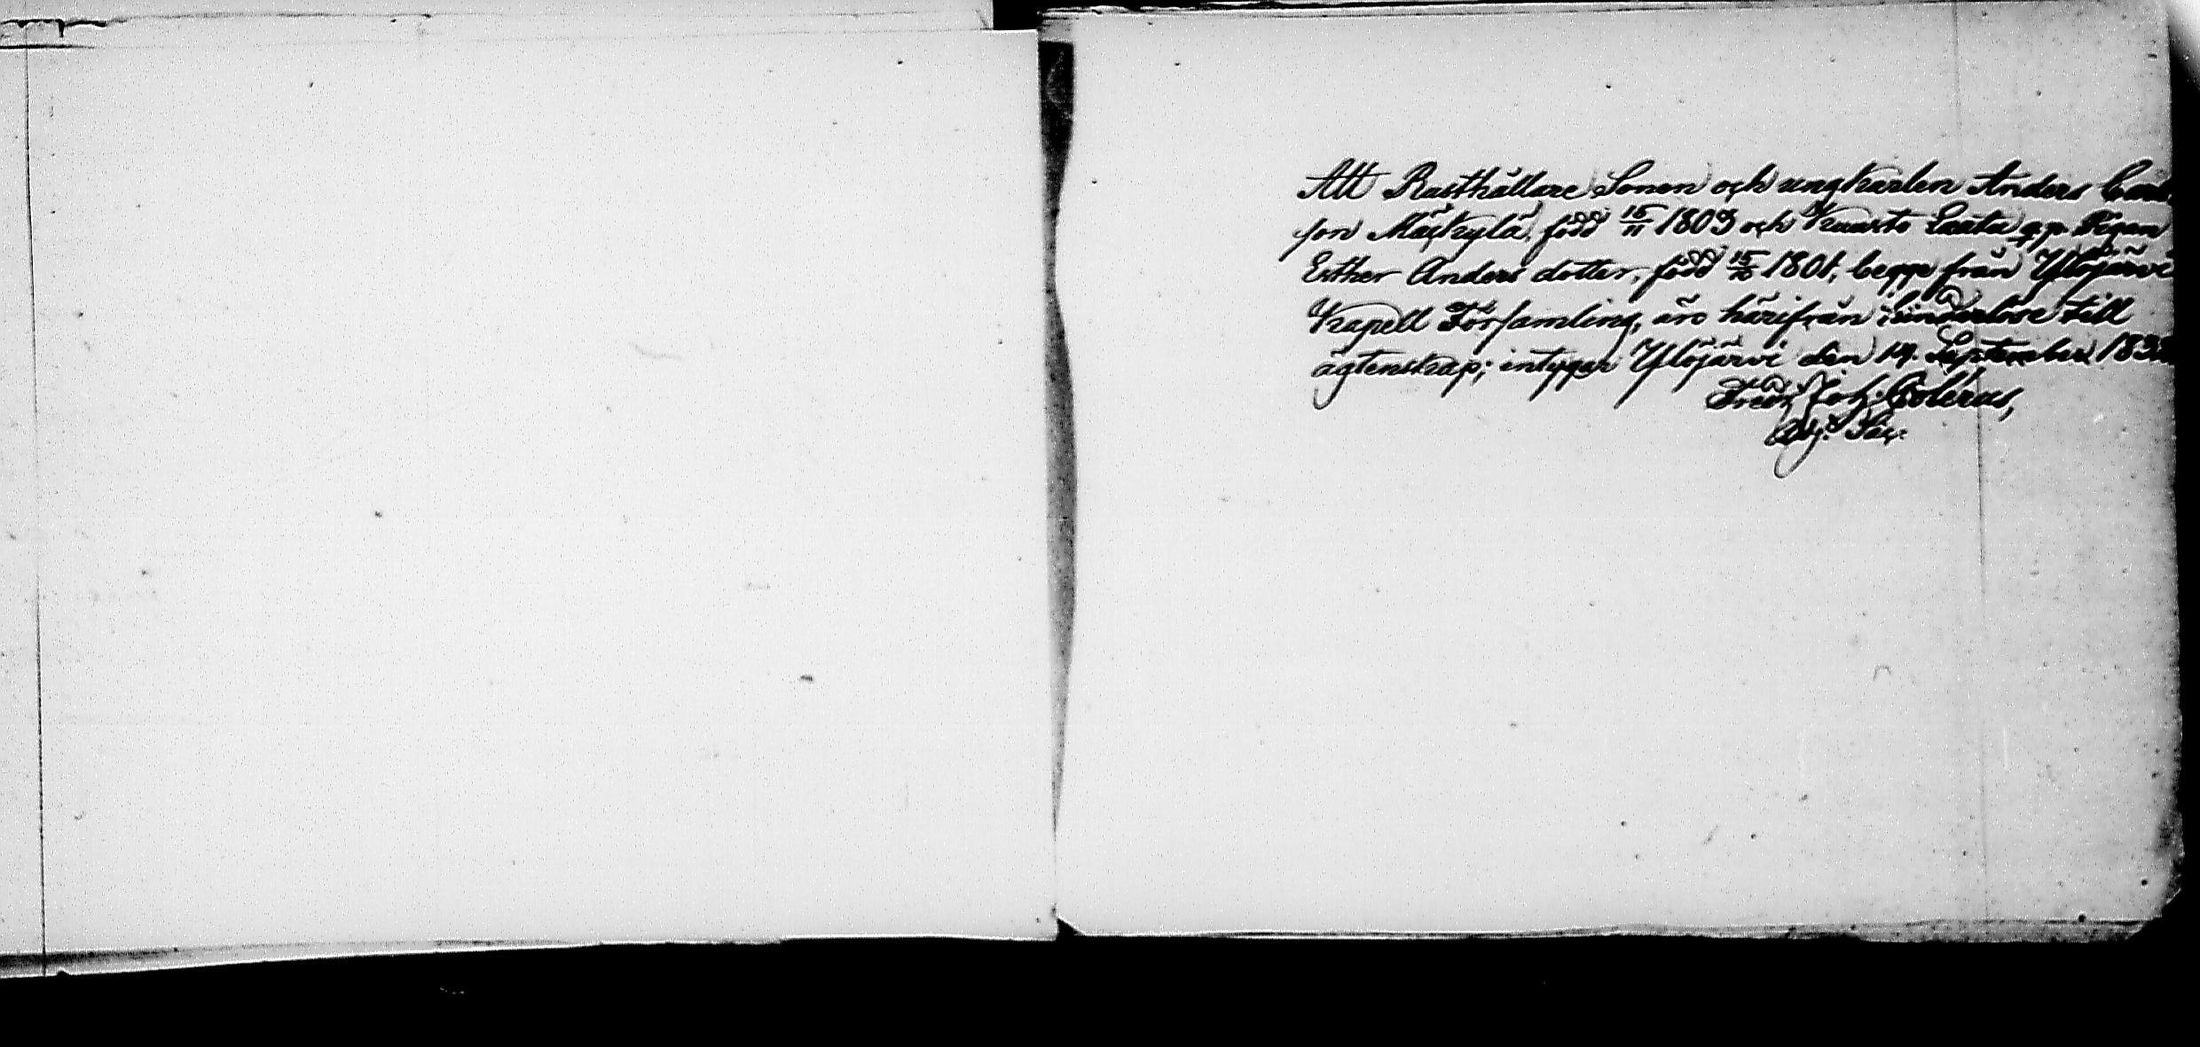 Att Rusthållare Sonen och ungkarlen Anders Carls
son Mäskylä, född 15/11 1803 och Kuusto Laata q.p. Pigan
Esther Anders dotter, född 15/10 1801, begge från Ylöjärvi
Kapell Församling, äro härifrån hinderlöse till
ägtenskap; intygar Ylöjärvi den 14. September 183
Fredr. Joh:
Adj. Sac.